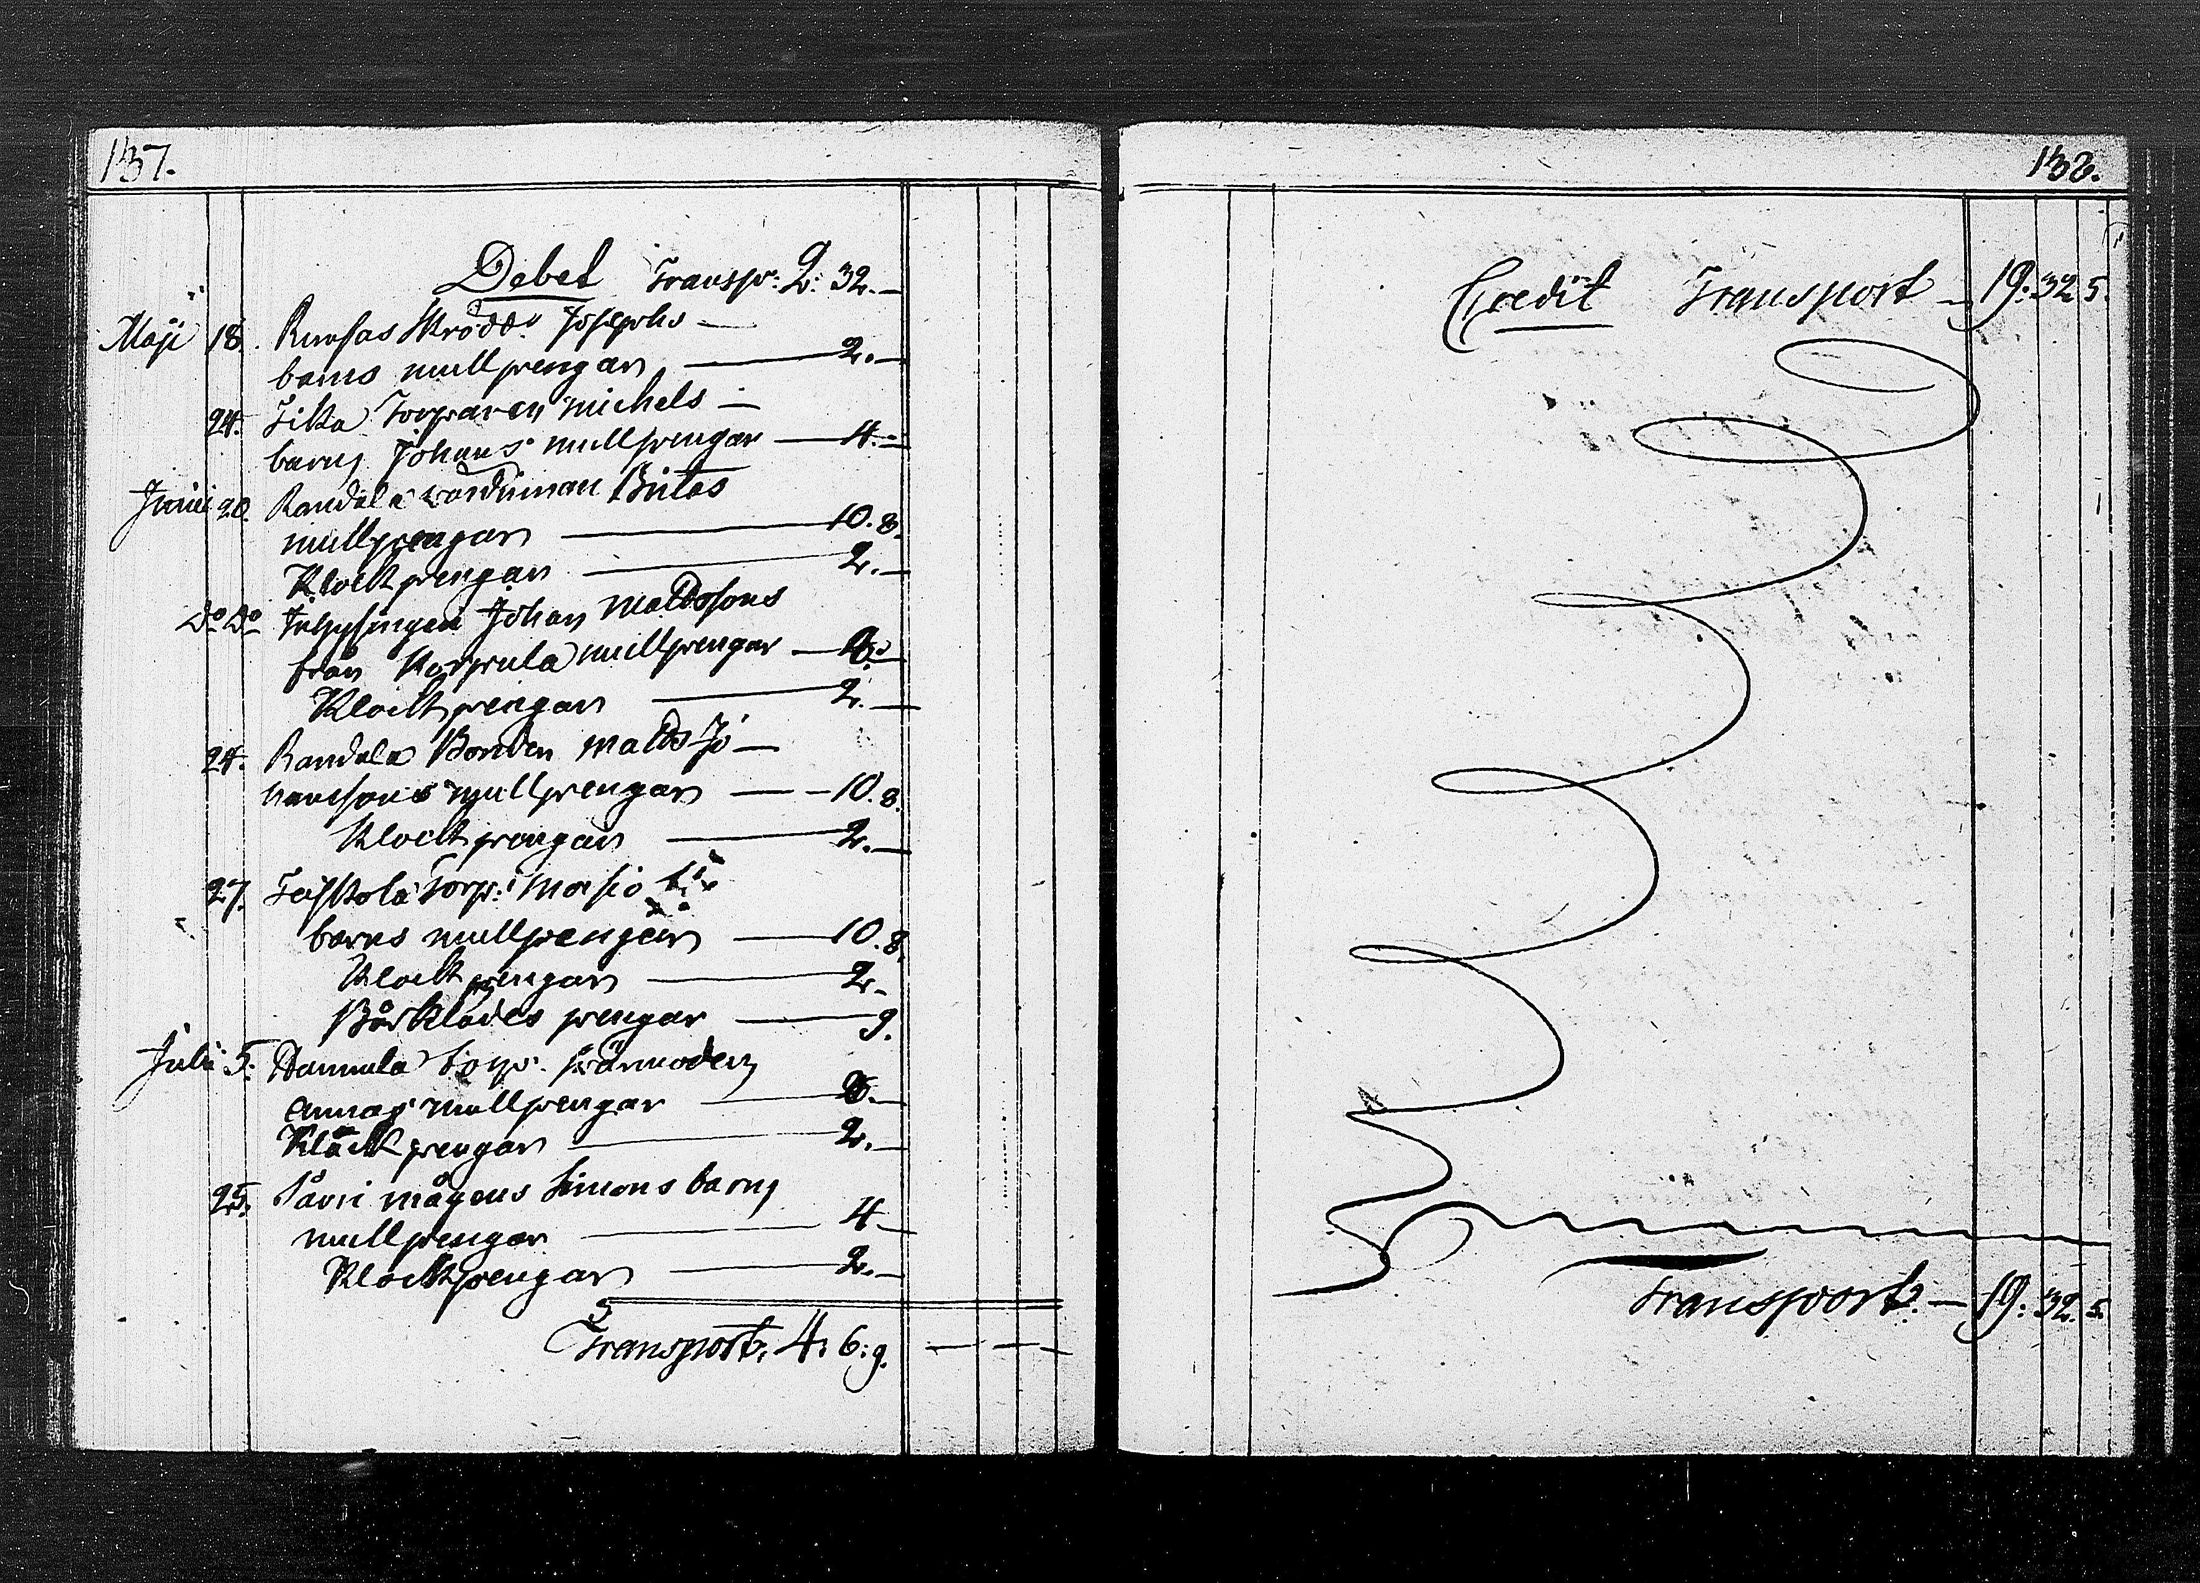 137.
Debet Transp: 2: 32.—
Maji 18. Skrädd: Josephs —
barns mullpengar — 2.—
24. Tika Torparen Michels —
barns Johans mullpengar — 4.—
Junii 20. Randala
mullpengar — 10. 8.
Klockpengar — 2.—
Do Do Inhysingen Johan Mattssons
från Korpula mullpengar —
Klockpengar — 2.—
24. Randala Bonden Matts Jo—
hanssons mullpengar — 10. 8.
Klockpengar — 2.—
27. Torp:
barns mullpengar — 10. 8.
Klockpengar — 2.—
Bårklädes pengar — 9.
Julii 5. Torp. swärmodern
Annas mullpengar —
Klåckpengar — 2.—
25. mågens Simons barns
mullpengar — 4.—
Klockpengar — 2.—
Transport: 4: 6: 9. — —
138.
Credit Transport — 19: 32. 5.
Transport: — 19: 32. 5.